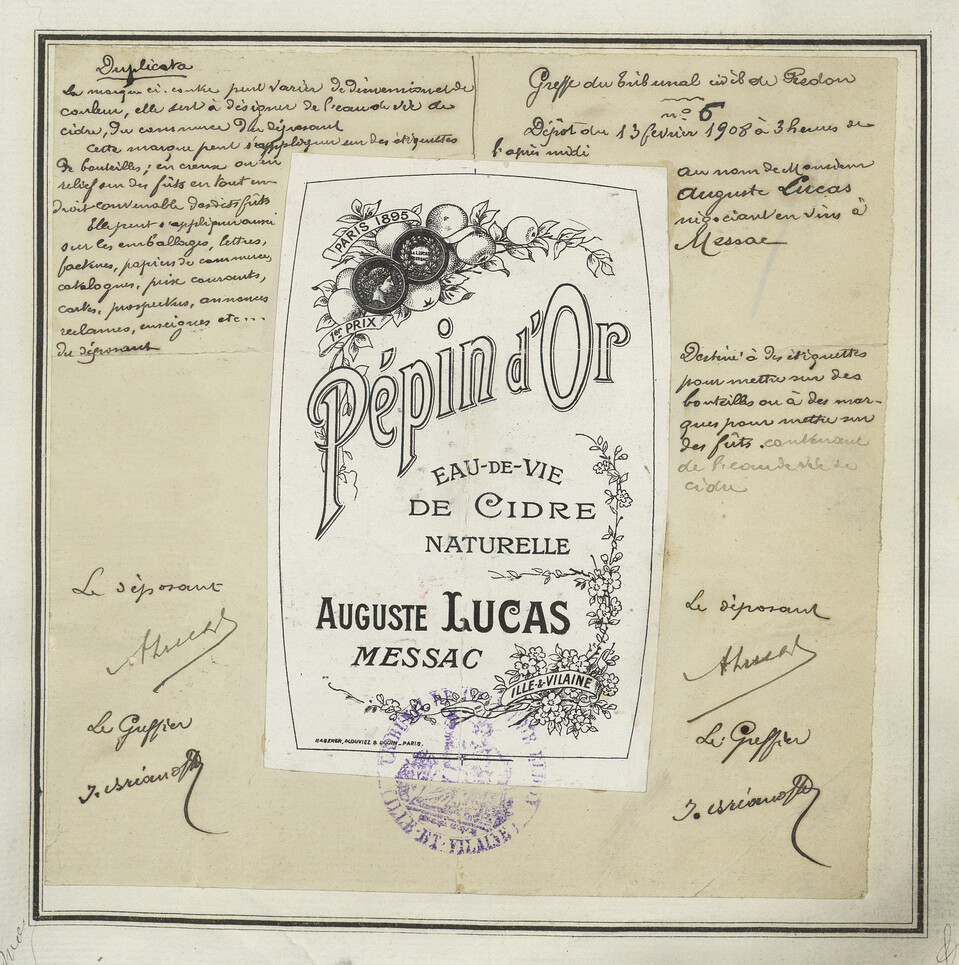 Duplicata
La marque ci-contre peut varier de dimension et de
couleur, elle sert à désigner de l'eau de vie de
cidre, du commerce du déposant
Cette marque peut s'appliquer sur des étiquettes
de bouteilles ; en creux ou en
relief sur des fûts en tout en-
droit convenable desdits fûts
Elle peut s'appliquer aussi
sur les emballages, lettres,
factures, papiers de commerce,
catalogues, prix courants,
cartes, prospectus, annonces
reclames, enseignes etc...
du déposant
Le déposant
ALucas
Le Greffier
Greffe du Tribunal civil de Redon
n° 6
Dépôt du 13 février 1908 à 3 heures de
l'après midi
au nom de Monsieur
Auguste Lucas
négociant en vins à
Messac
Destiné à des étiquettes
pour mettre sur des
bouteilles ou à des mar-
ques pour mettre sur
des fûts. contenant
de l'eau de vie de
cidre
Le déposant
ALucas
Le Greffier
PARIS 1895
1er PRIX
Pépin d'Or
EAU-DE-VIE
DE CIDRE
NATURELLE
AUGUSTE LUCAS
MESSAC
ILLE & VILAINE
HABERER, & DOUIN_PARIS.
TRIBUNAL DE
ILLE-ET-VILAINE